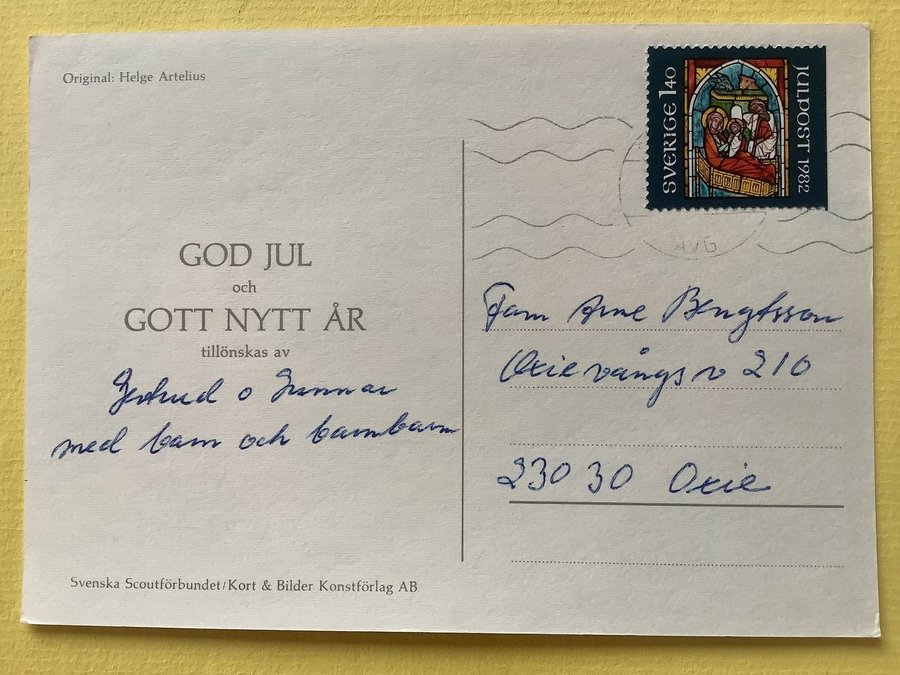 Original: Helge Artelius
SVERIGE 1.40
JULPOST 1982
GOD JUL
och
GOTT NYTT ÅR
tillönskas av
Gertrud o Gunnar
med barn och barnbarn
Fam Arne Bengtsson
Oxievångsv 210
230 30 Oxie
Svenska Scoutförbundet/Kort & Bilder Konstförlag AB